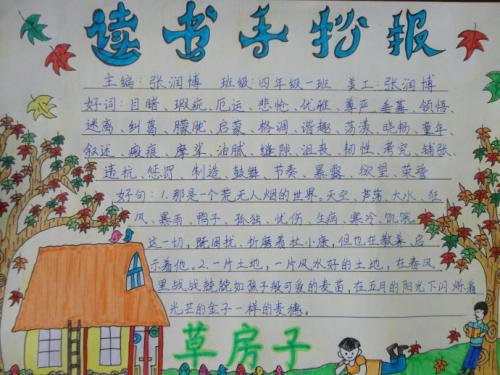 读书手抄报
主编:张润博 班级:四年级一班 美工:张润博
好词:目睹、瑕疵、厄运、悲怆、优雅、尊严、垂暮、领悟
迷离、纠葛、朦胧、启蒙、格调、谐趣、荡漾、晓畅、童年
叙述、痕、摩挲、油腻、缝隙、沮丧、韧性、考究、铺张
违抗、惩罚、制造、鼓舞、节奏、暴露、欲望、荣誉
好句:1.那是一个荒无人烟的世界。天空、芦荡、大水、狂
风、暴雨、鸭子、孤独、忧伤、生病、寒冷、饥饿
这一切,既困扰、折磨着杜小康,但也在教养、启
示着他。2.一片土地,一片风水好的土地,在春风
里战战兢兢如孩子般可爱的麦苗,在五月的阳光下闪烁着
光芒的金子一样的麦穗。
草房子